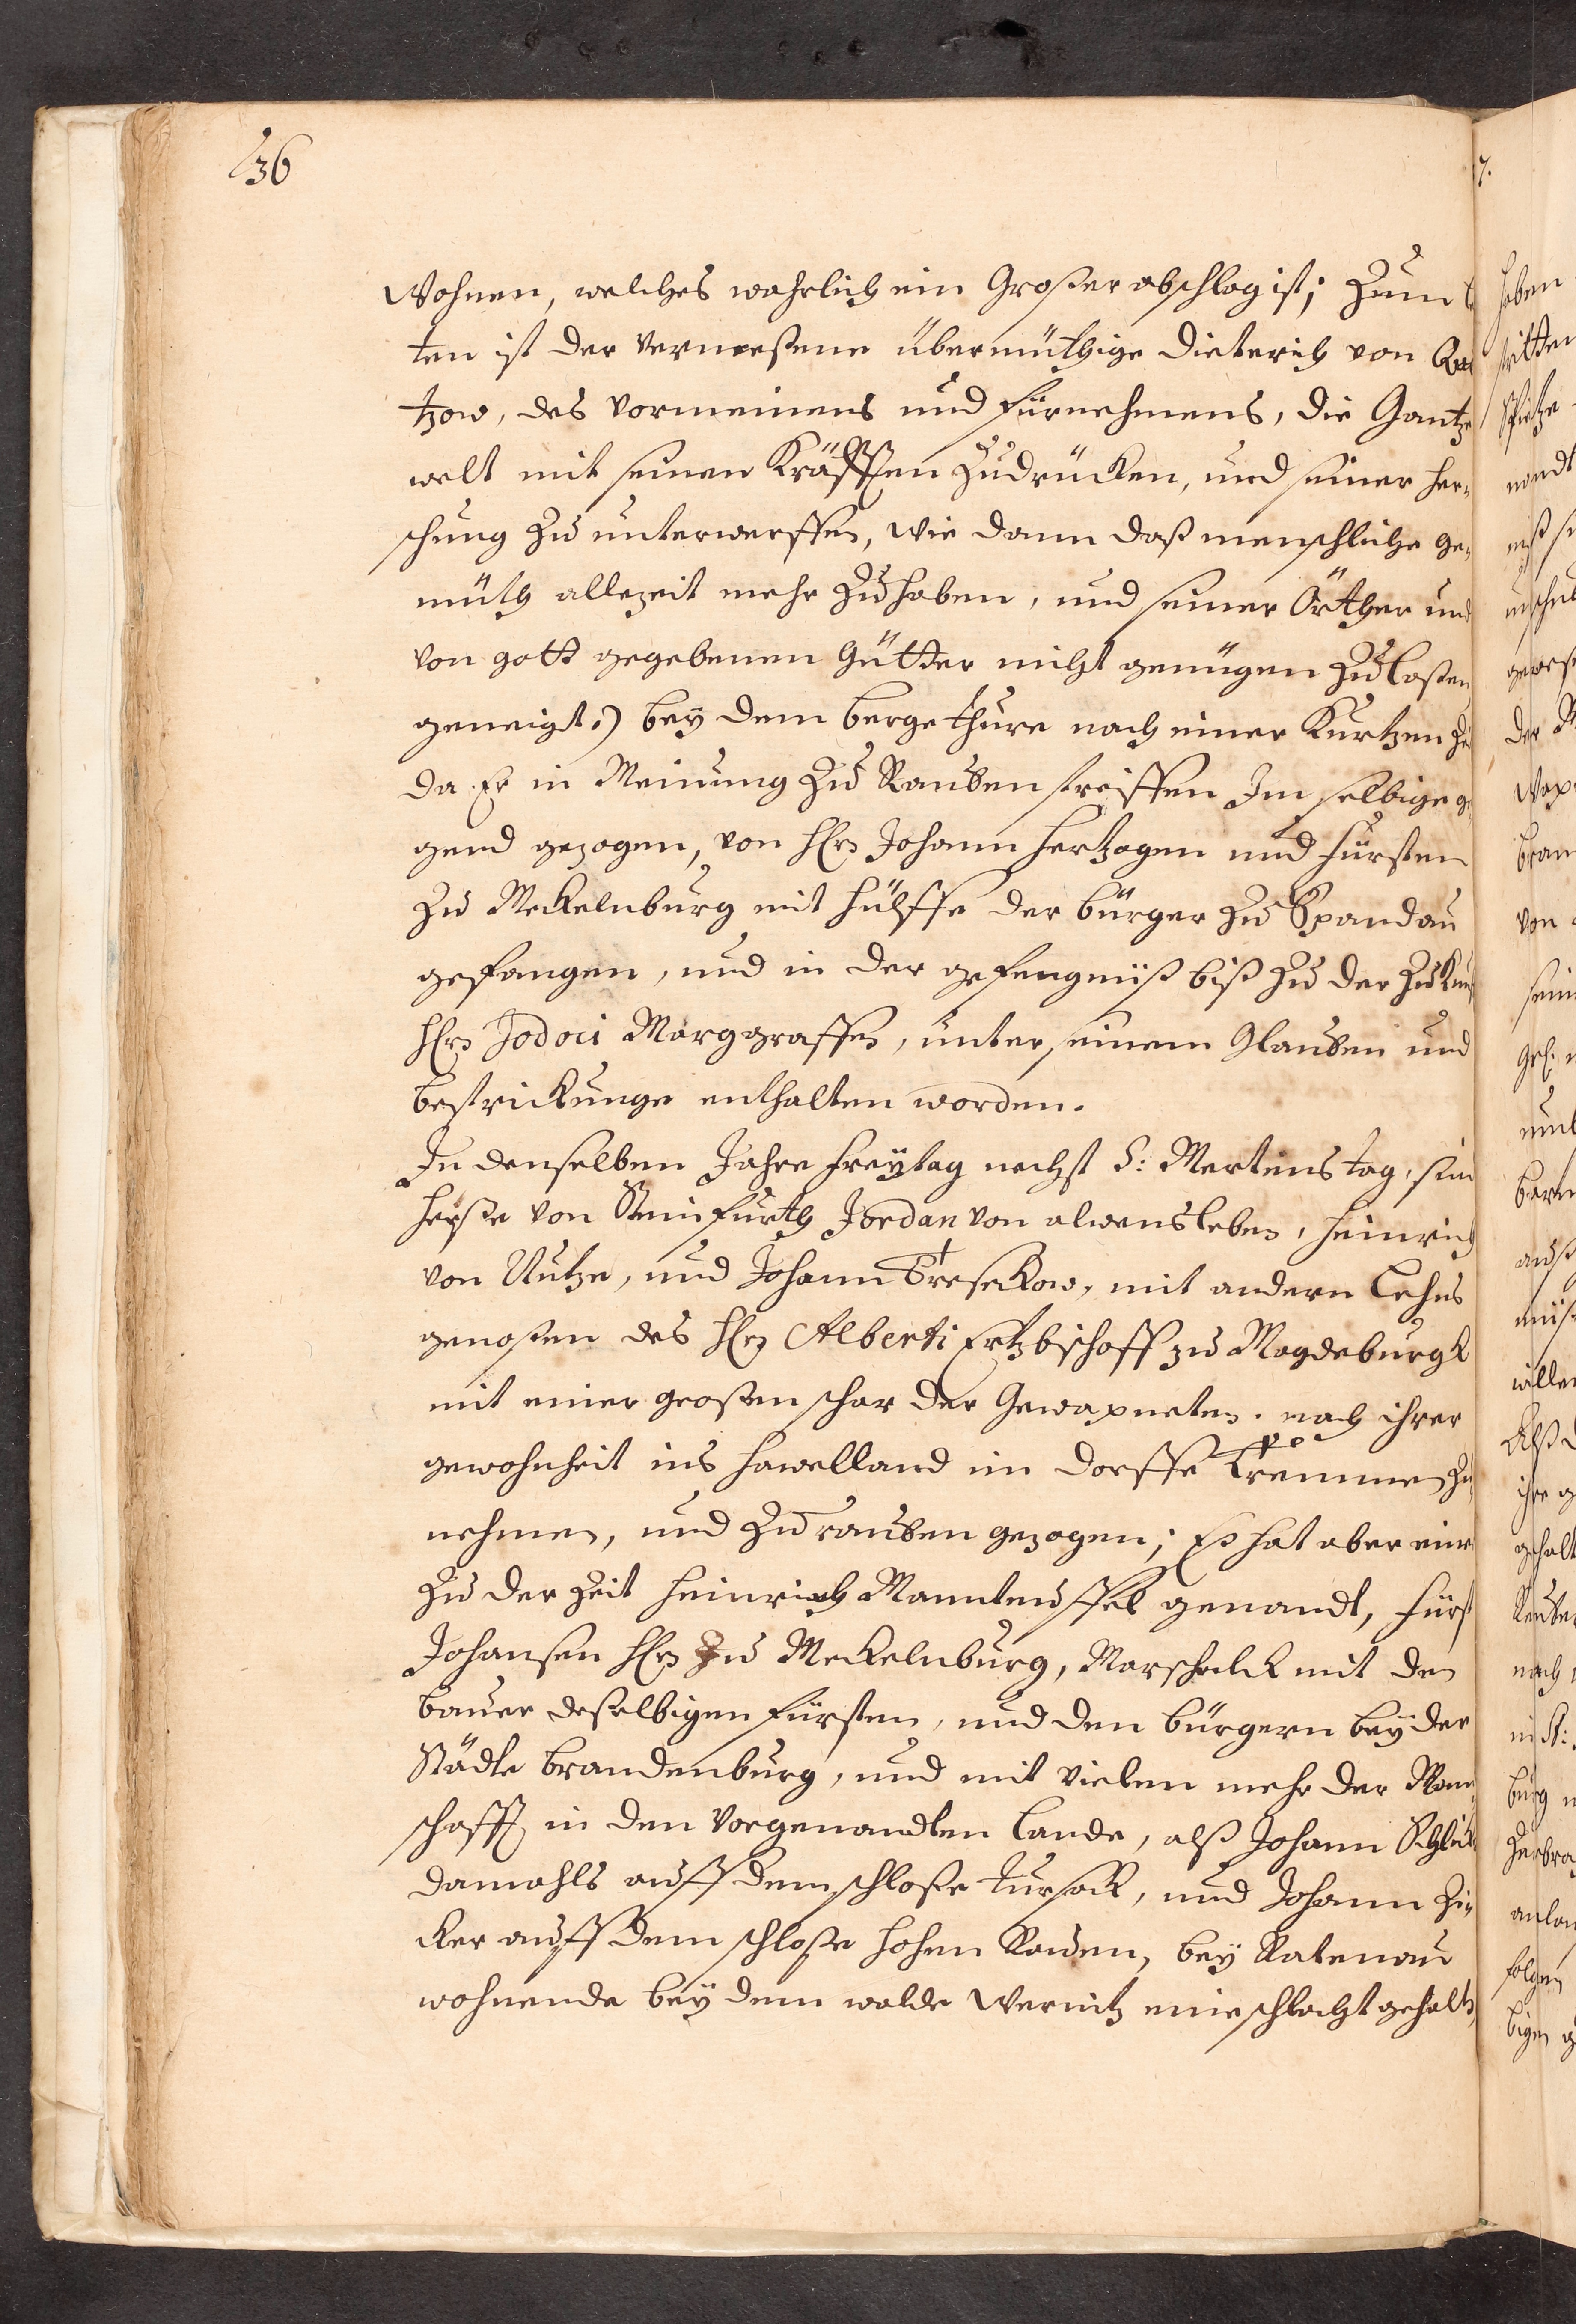 136
Wohnen, welches wahrlich ein Großer abschlag ist; Zum
ten ist der Vermeßene übermüthige Dieterich von Qui
tzow, des vormeinens und fürnehmens, die Gantze
welt mit seinen Kräfften zudrücken, und seiner her„
schung zu unterwerffen, wie dann daß menschliche ge„
müth allezeit mehr zu haben, und seiner Örther und
von gott gegebenen Gütter nicht genügen zu laßen
geneigt.) bey dem berge thure nach einer Kurtzen
da Er in Meinung zu Rauben streiffen Im selbige ge
gend gezogen, von Hrn Johann Hertzogen und Fürsten
zu Meckelnburg mit hülffe der bürger zu Spandau
gefangen, und in der gefengniß biß zu der zukunf
Hrn Jodoci Marggraffen, unter seinem Glauben und
bestrickunge enthalten worden.
In denselben Jahre freytag nechst S: Mertens tag, sin
heyße von Steinfurth Jordan von alvensleben, Heinrich
von Nutze, und Johann Treskow, mit andern Lehns
genoßen des Hrn Alberti Ertzbischoff zu Magdeburgk
mit einer großen schar der Gewapneten. nach ihrer
gewohnheit ins havelland im dorffe Tremmen zu
nehmen, und zu rauben gezogen; Es hat aber einer
zu der Zeit Heinrich Manteuffel genandt, Fürst
Johansen Hrn zu Meckelnburg, Marschalck mit den
bauer deßelbigen Fürsten, und den bürgern beyder
Städte brandenburg, und mit vielen mehr der Man„
schafft in den vorgenandten Lande, alß Johann
damahls auff dem schloße Fursack, und Johann Zi„
cker auff dem schloße hohen Rauen, bey Ratenau
wohnende bey dem walde Wernitz eine schlacht gehalten
7.
haben